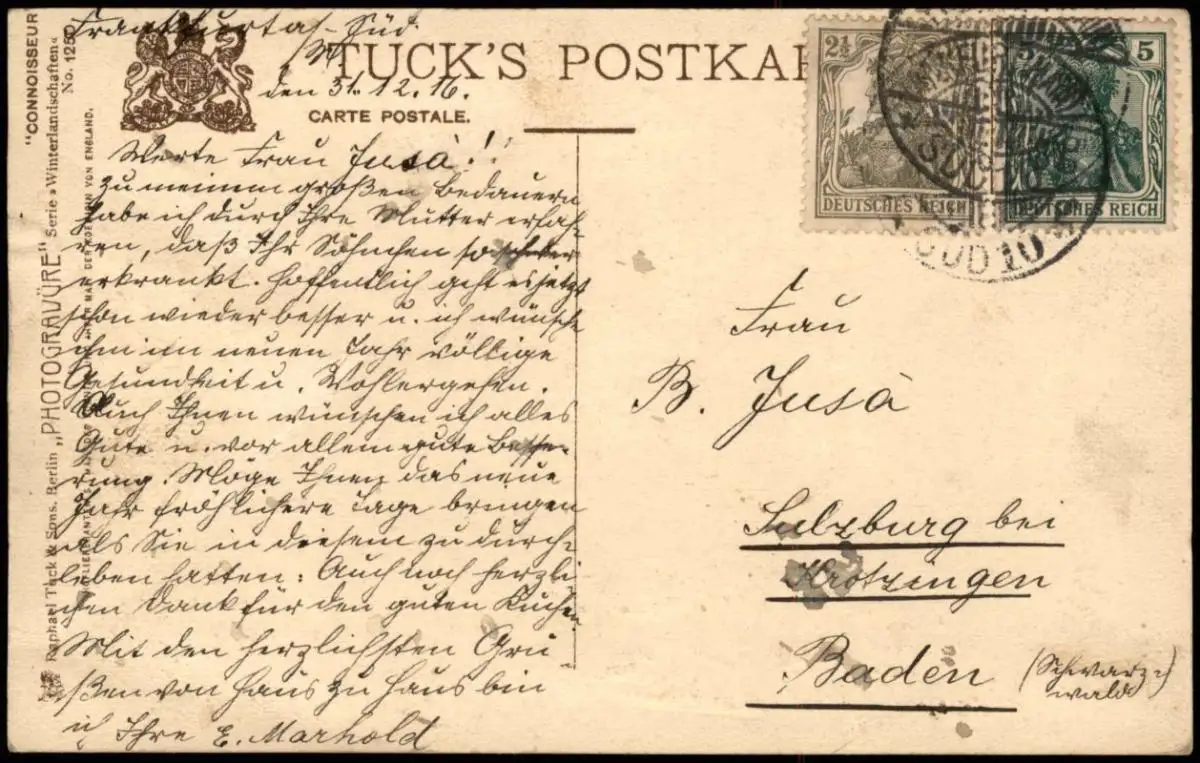 "CONNOISSEUR"
No. 1250
Raphael Tuck & Sons. Berlin „PHOTOGRAVÜRE" Serie »Winterlandschaften«
VON ENGLAND.
TUCK'S POSTKAR
CARTE POSTALE.
Frankfurt a/M-Süd
den 31.12.16.
Werte Frau Jusà!!
Zu meinem großen Bedauern
habe ich durch Ihre Mutter erfah-
ren, daß Ihr Söhnchen so schwer
erkrankt. Hoffentlich geht es jetzt
schon wieder besser u. ich wünsche
ihm im neuen Jahr völlige
Gesundheit u. Wohlergehen.
Auch Ihnen wünschen ich alles
Gute u. vor allem gute Besse-
rung. Möge Ihnen das neue
Jahr fröhlichere Tage bringen
als Sie in diesem zu durch-
leben hatten: Auch noch herzli
chen Dank für den guten Kuchen.
Mit den herzlichsten Grü-
ßen von Haus zu Haus bin
ich Ihre E. Marhold
2½
DEUTSCHES REICH
5
DEUTSCHES REICH
SÜD 10
Frau
B. Jusà
Sulzburg bei
Krotzingen
Baden
(Schwarz-)
wald